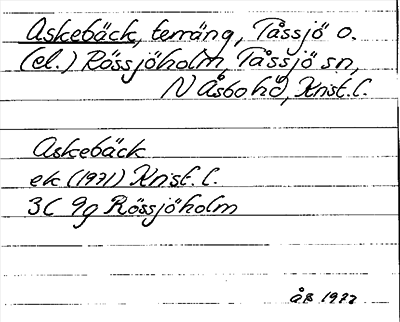 Askebäck, terräng, Tåssjö o.
(el.) Rössjöholm, Tåssjö sn,
N Åsbo hd, Krist. l.
Askebäck
ek (1971) Krist. l.
3C 9g Rössjöholm
åB 1977